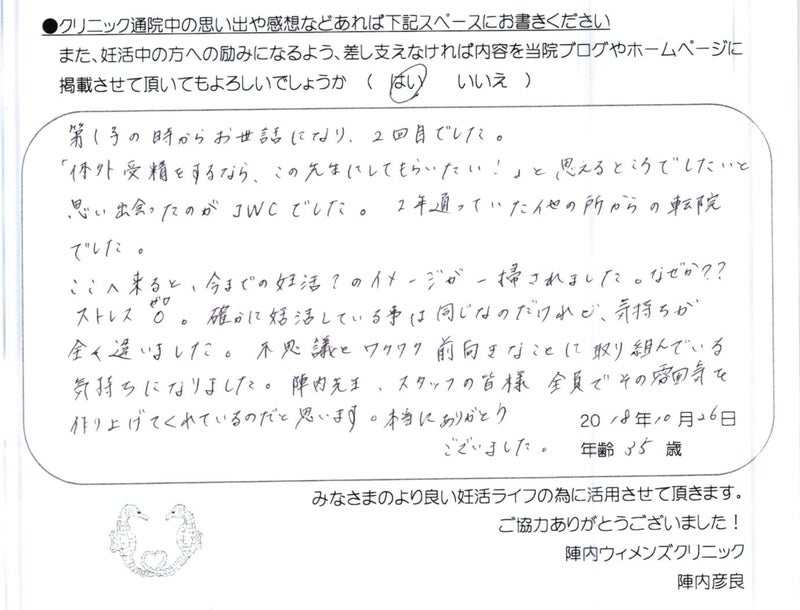 ●クリニック通院中の思い出や感想などあれば下記スペースにお書きください
また、妊活中の方への励みになるよう、差し支えなければ内容を当院ブログやホームページに
掲載させて頂いてもよろしいでしょうか （ はい いいえ ）
第1子の時からお世話になり、2回目でした。
「体外受精をするなら、この先生にしてもらいたい！」と思えるところでしたいと
思い出会ったのがJWCでした。2年通っていた他の所からの転院
でした。
ここへ来ると、今までの妊活？のイメージが一掃されました。なぜか？？
ストレス0ゼロ。確かに妊活している事は同じなのだけれど、気持ちが
全く違いました。不思議とワクワク前向きなことに取り組んでいる
気持ちになりました。陣内先生、スタッフの皆様 全員でその雰囲気を
作り上げてくれているのだと思います。本当にありがとう
ございました。
2018年10月26日
年齢 35 歳
みなさまのより良い妊活ライフの為に活用させて頂きます。
ご協力ありがとうございました！
陣内ウィメンズクリニック
陣内彦良